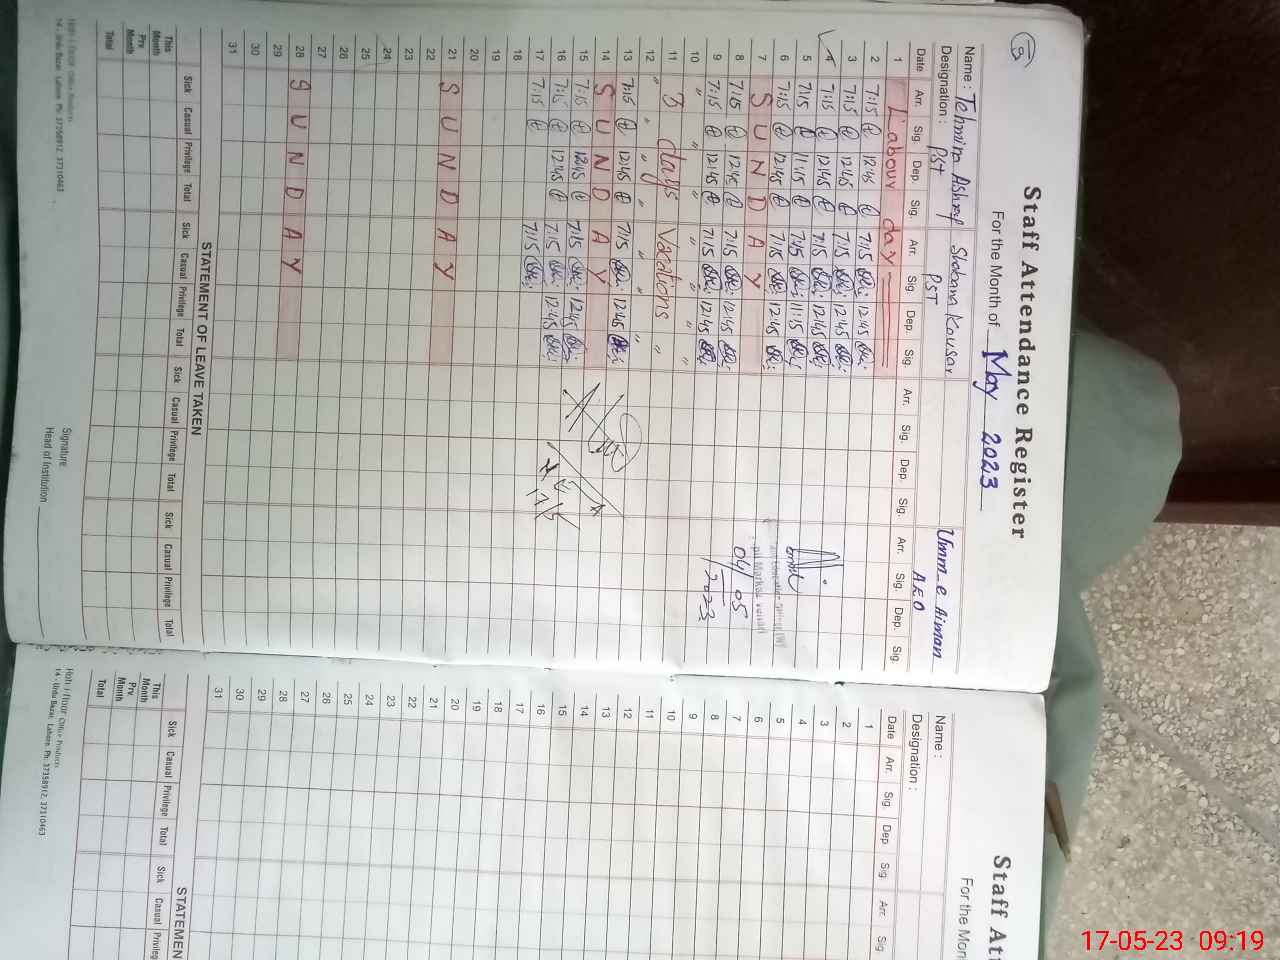 5
Staff Attendance Register
For the Month of May 2023
Name : Tehmina Ashraf Shabana Kousar Umm_e_Aiman
Designation : PST PST AEO
Date Arr. Sig. Dep. Sig. Arr. Sig. Dep. Sig. Arr. Sig. Dep. Sig. Arr. Sig. Dep. Sig.
1 Labour day
2 7:15 12:45 7:15 12:45
3 7:15 12:45 7:15 12:45
4 7:15 12:45 7:15 12:45
5 7:15 11:15 7:15 11:15
6 7:15 12:45 7:15 12:45
7 SUNDAY
8 7:15 12:45 7:15 12:45
04/05/2023
9 7:15 12:45 7:15 12:45
10 " " " " " "
11 3 days Vacations
12 " " " " " " "
13 7:15 12:45 7:15 12:45
14 SUNDAY
15 7:15 12:45 7:15 12:45
16 7:15 12:45 7:15 12:45
17 7:15 7:15
18
19
20
21 SUNDAY
22
23
24
25
26
27
28 SUNDAY
29
30
31
STATEMENT OF LEAVE TAKEN
Sick Casual Privilege Total Sick Casual Privilege Total Sick Casual Privilege Total Sick Casual Privilege Total
This Month
Prv. Month
Total
Signature
Head of Institution
Office Products
14 - Urdu Bazar, Lahore. Ph: 37358912, 37310463
Staff Att
For the Mon
Name :
Designation :
Date Arr. Sig. Dep. Sig. Arr. Sig.
1
2
3
4
5
6
7
8
9
10
11
12
13
14
15
16
17
18
19
20
21
22
23
24
25
26
27
28
29
30
31
STATEMEN
Sick Casual Privilege Total Sick Casual Privileg
This Month
Prv. Month
Total
Office Products
14 - Urdu Bazar, Lahore. Ph: 37358912, 37310463
17-05-23 09:19